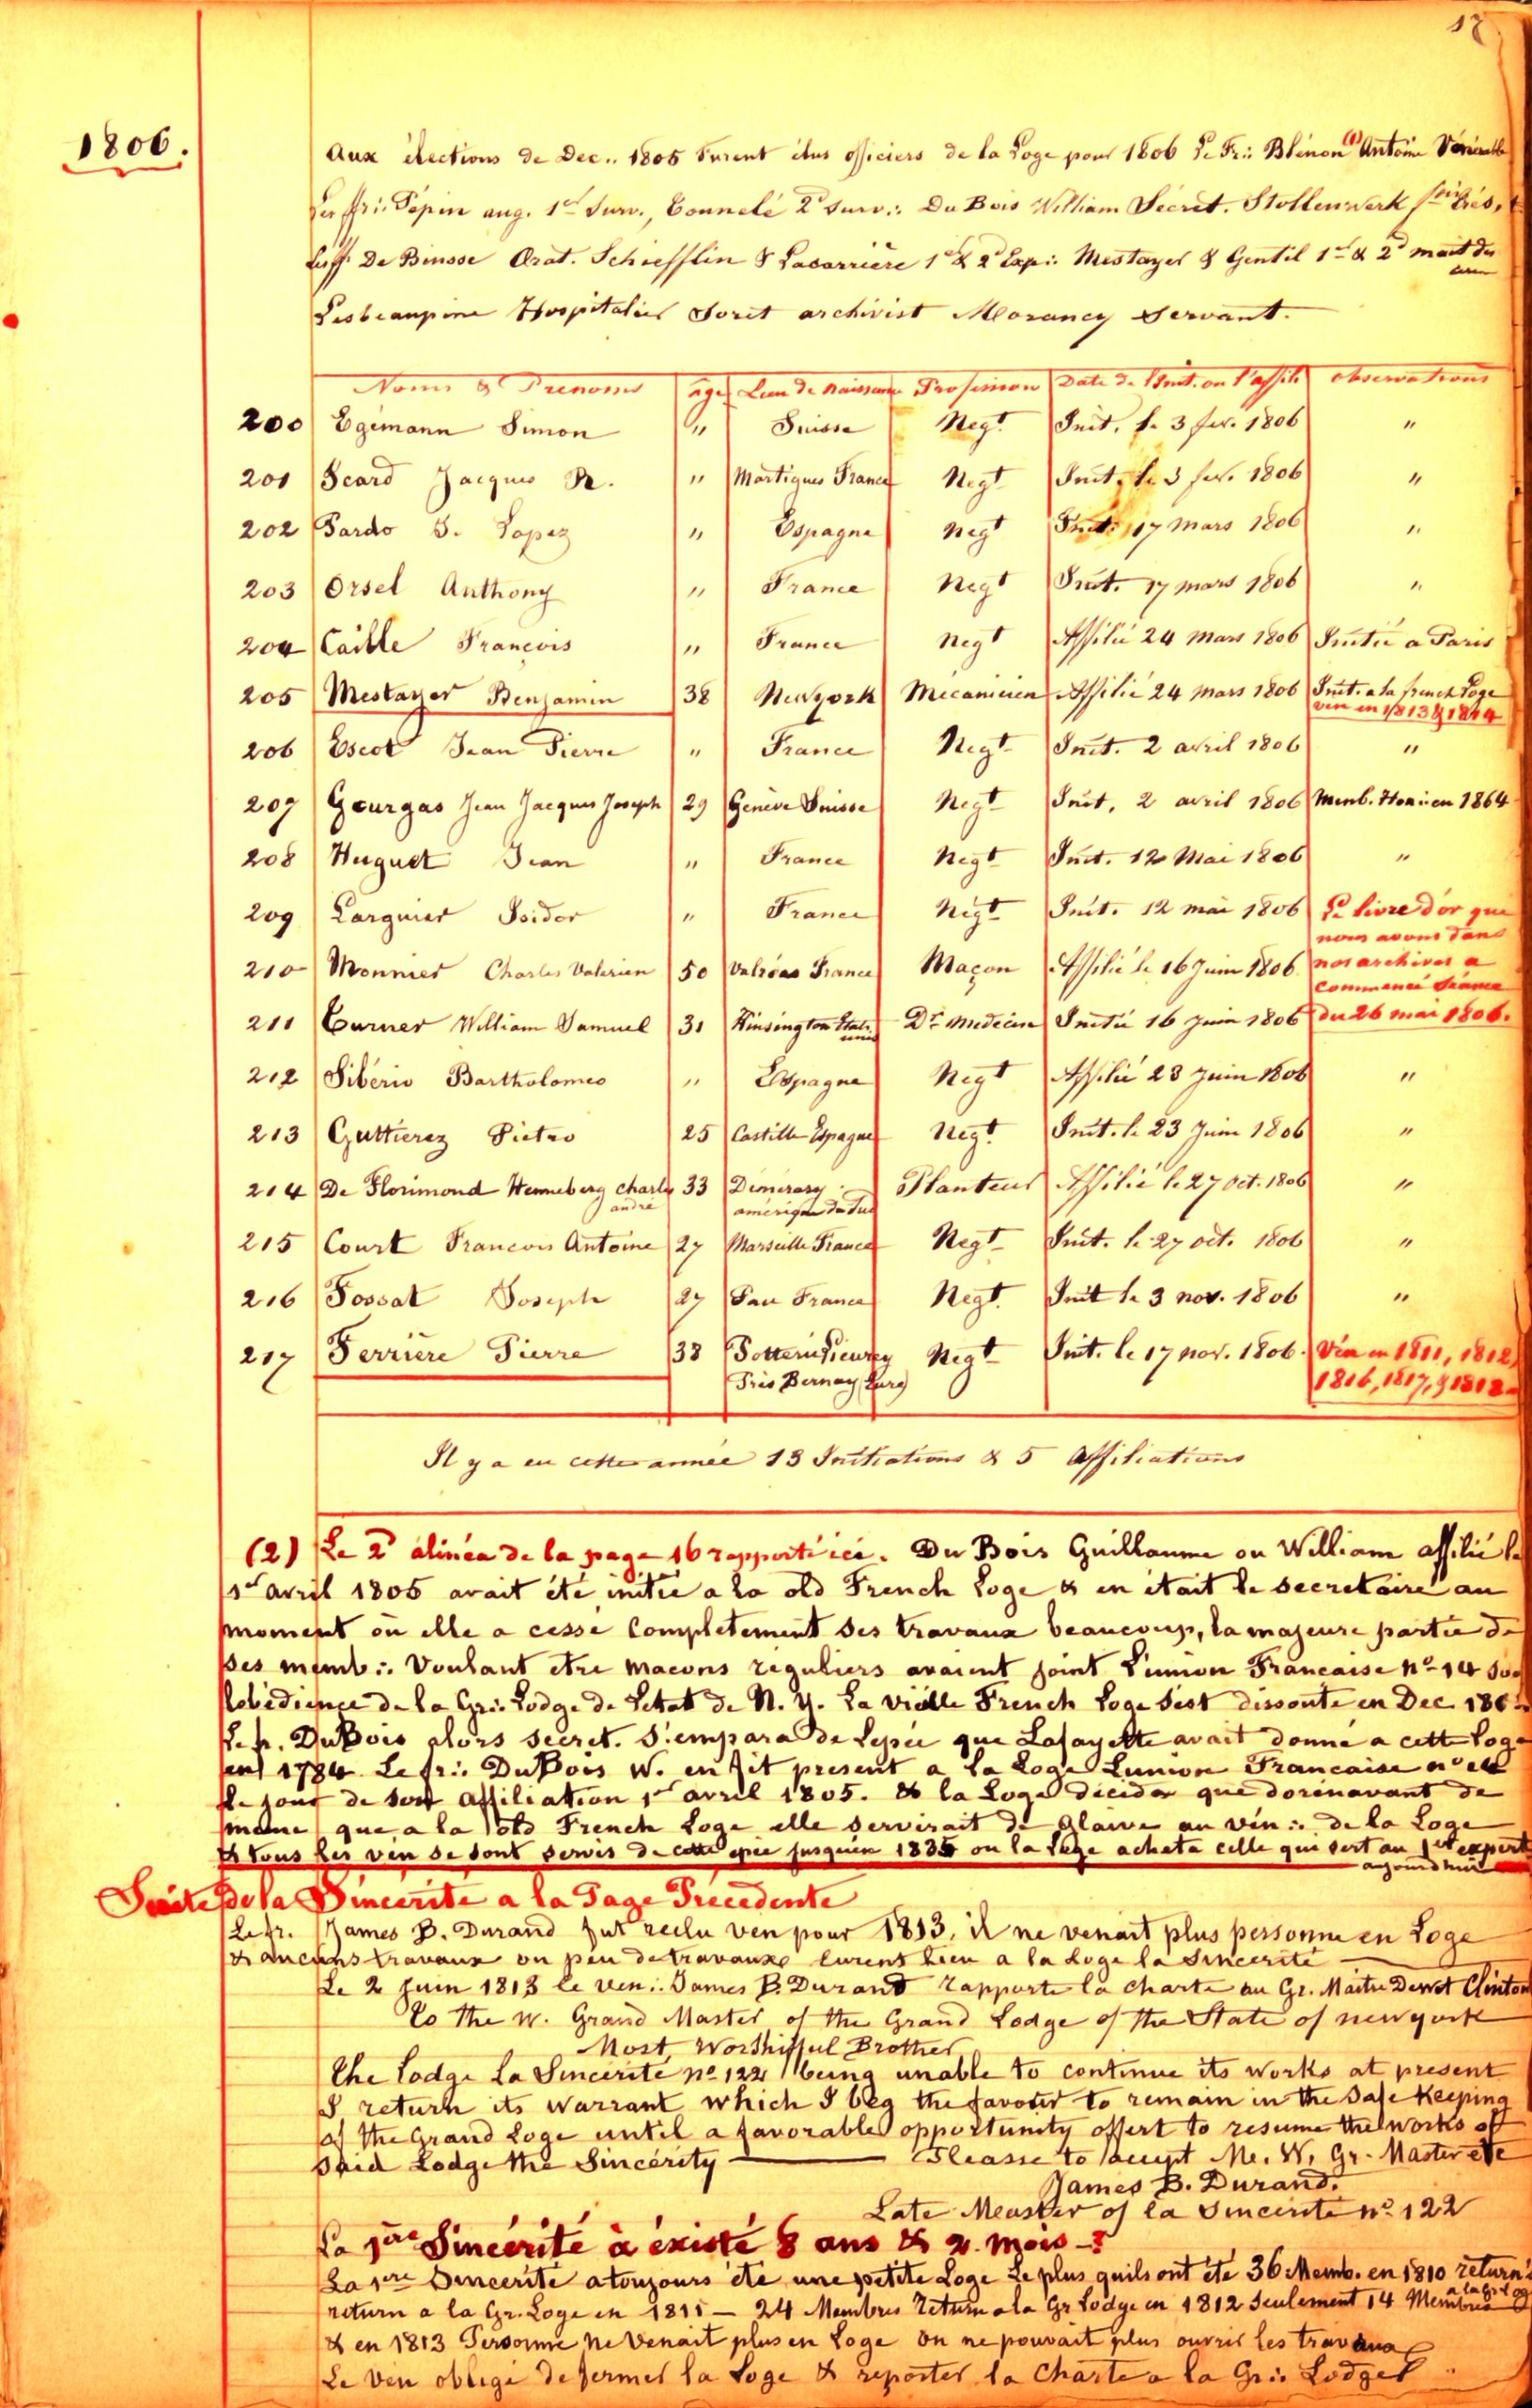 17
1806.
Aux élections de Dec.. 1805 furent élus officiers de la Loge pour 1806 Le Fr∴ Blénon (1) Antoine Vénérable
Les ffr∴ Pépin aug. 1er Surv., Tonnelé 2d Surv∴ Du Bois William Sécret. Stollenwerk Trés.
Les ff. De Binsse Orat. Schiefflin & Lacarrière 1er & 2d Exp∴ Mestayer & Gentil 1er & 2d mait des cerem
Lesbeaupine Hospitalier Soret archivist Morancy Servant.
Noms & Prenoms age Lieu de naissance Profession Date de l'Init. ou l'affili observations
200 Egémann Simon " Suisse Negt. Init. le 3 fev. 1806 "
201 Icard Jacques R. " Martigues France Negt Init. le 3 fev. 1806 "
202 Pardo J. Lopez " Espagne Negt Init. 17 mars 1806 "
203 Orsel Anthony " France Negt Init. 17 mars 1806 "
204 Caille Francois " France Negt Affilié 24 mars 1806 Initié a Paris
205 Mestayer Benjamin 38 Newyork Mécanicien Affilié 24 mars 1806 Init. a la french Loge
ven en 1813 & 1814
206 Escot Jean Pierre " France Negt Init. 2 avril 1806 "
207 Gourgas Jean Jacques Joseph 29 Genève Suisse Negt Init, 2 avril 1806 Memb. Hon∴ en 1864
208 Huguet Jean " France Negt Init. 12 Mai 1806 "
209 Larguier Isidor " France Negt Init. 12 mai 1806 Le livre d'or que
nous avons dans
210 Monnier Charles Valerien 50 Valréas France Maçon Affilié le 16 Juin 1806 nos archives a
commencé séance
211 Turner William Samuel 31 Kinsington Etats unis Dr medecin Initié 16 Juin 1806 du 26 mai 1806.
212 Sibério Bartholomeo " Espagne Negt Affilié 23 Juin 1806 "
213 Guttierez Pietro 25 Castille Espagne Negt. Init. le 23 Juin 1806 "
214 De Florimond Henneberg Charles andré 33 Démérary amérique du Sud Planteur Affilié le 27 oct. 1806 "
215 Court Francois Antoine 27 Marseille France Negt Init. le 27 oct. 1806 "
216 Fossat Joseph 27 Pau France Negt. Init le 3 nov. 1806 "
217 Ferrière Pierre 38 Negt Init. le 17 nov. 1806. Vén en 1811, 1812,
Près Bernay Eure) 1816, 1817, & 1818
Il y a eu cette année 13 Initiations & 5 Affiliations
(2) Le 2d alinéa de la page 16 rapporté ici. Du Bois Guillaume ou William affilié le
1er avril 1805 avait été initié a la old French Loge & en était le secretaire au
moment où elle a cessé completement ses travaux beaucoup, la majeure partie de
ses memb∴ Voulant etre macons réguliers avaient joint L'union Francaise no 14 sous
lobédience de la Gr∴ Lodge de Letat de N. Y. La vieille French Loge s'est dissoute en Dec
Le fr. DuBois alors secret. s'empara de Lepée que Lafayette avait donné a cett Loge
en 1784. Le fr∴ DuBois W. en fit present a la Loge Lunion Francaise no 14
le jour de son affiliation 1er avril 1805. & la Loge décida que dorénavant de
meme que a la old French Loge elle servirait de glaive au vén∴ de la Loge
& tous les vén se sont servis de cette epée jusquen 1835 ou la Loge acheta celle qui sert au 1er expert
aujourdhui
Suite de la Sincérité a la Page Précedente
Le fr. James B. Durand fut reelu ven pour 1813, il ne venait plus personne en Loge
& aucuns travaux ou peu de travaux eurent lieu a la Loge la Sincerité
Le 2 Juin 1813 le ven∴ James B. Durand rapporte la charte au Gr. Maitre Dewit Clinton
To the W. Grand Master of the Grand Lodge of the State of newyork
Most Worshipful Brother
The lodge La Sincerité no 122 being unable to continue its works at present
I return its warrant which I beg the favour to remain in the safe keeping
of the Grand Loge until a favorable opportunity offert to resume the works of
said Lodge the Sincérity — Please to accept M. W. Gr. Master etc
James B. Durand.
Late Measter of la Sincerité no 122
La 1ère Sincérité à éxisté 8 ans & 2 mois
La 1ere Sincerité a toujours été une petite Loge Le plus quils ont été 36 Memb. en 1810 return
a la Gr Loge
return a la Gr. Loge en 1811 — 24 Membres return a la Gr Lodge en 1812 seulement 14 Membres
& en 1813 Personne ne Venait plus en Loge on ne pouvait plus ouvrir les travaux
Le Ven obligé de fermer la Loge & reporter la Charte a la Gr∴ Lodge